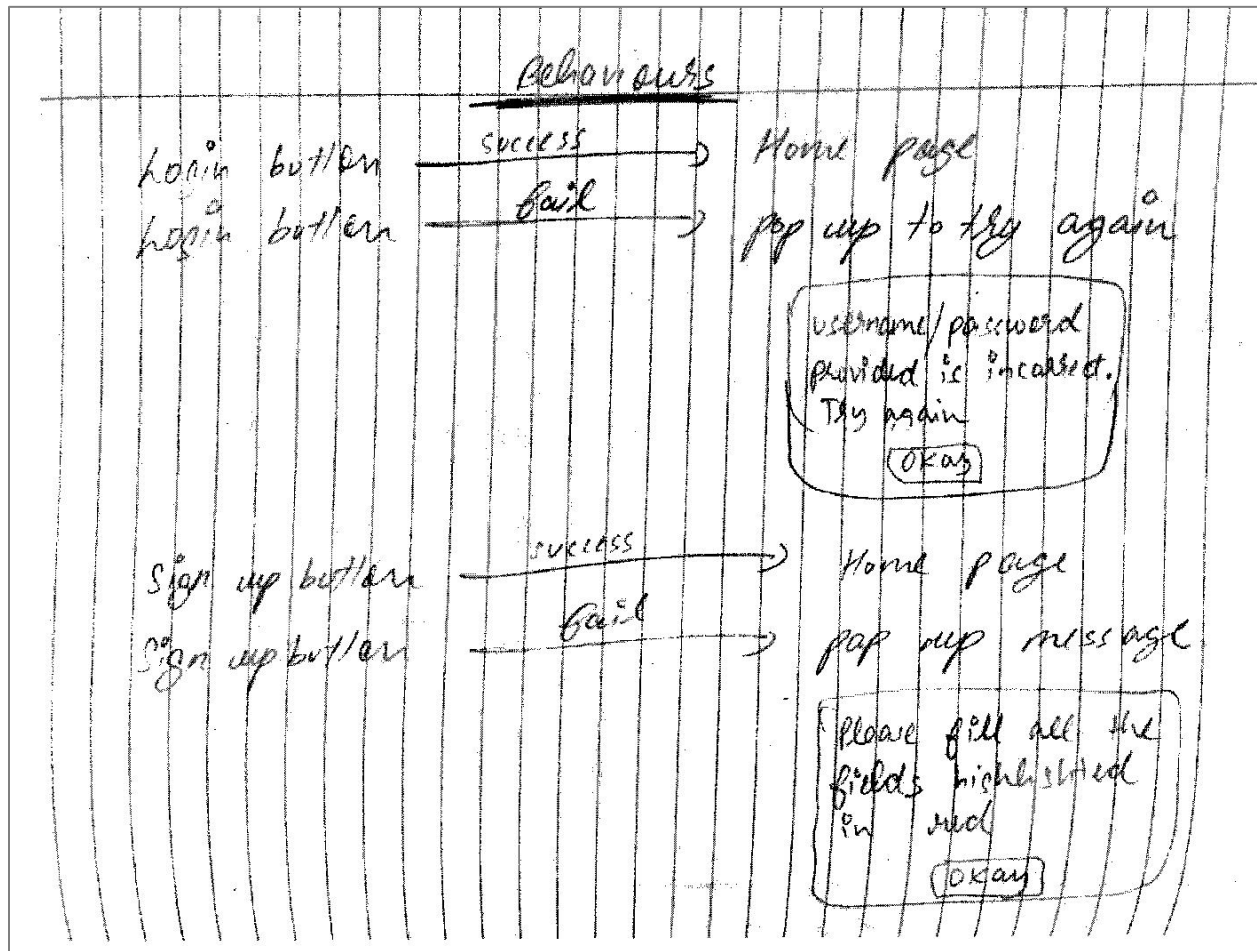 Behaviours
Login button success Home page
Login button fail pop up to try again
username/password
provided is incorrect.
Try again
Okay
Sign up button success Home page
Sign up button fail pop up message
Please fill all the
fields highlighted
in red
Okay